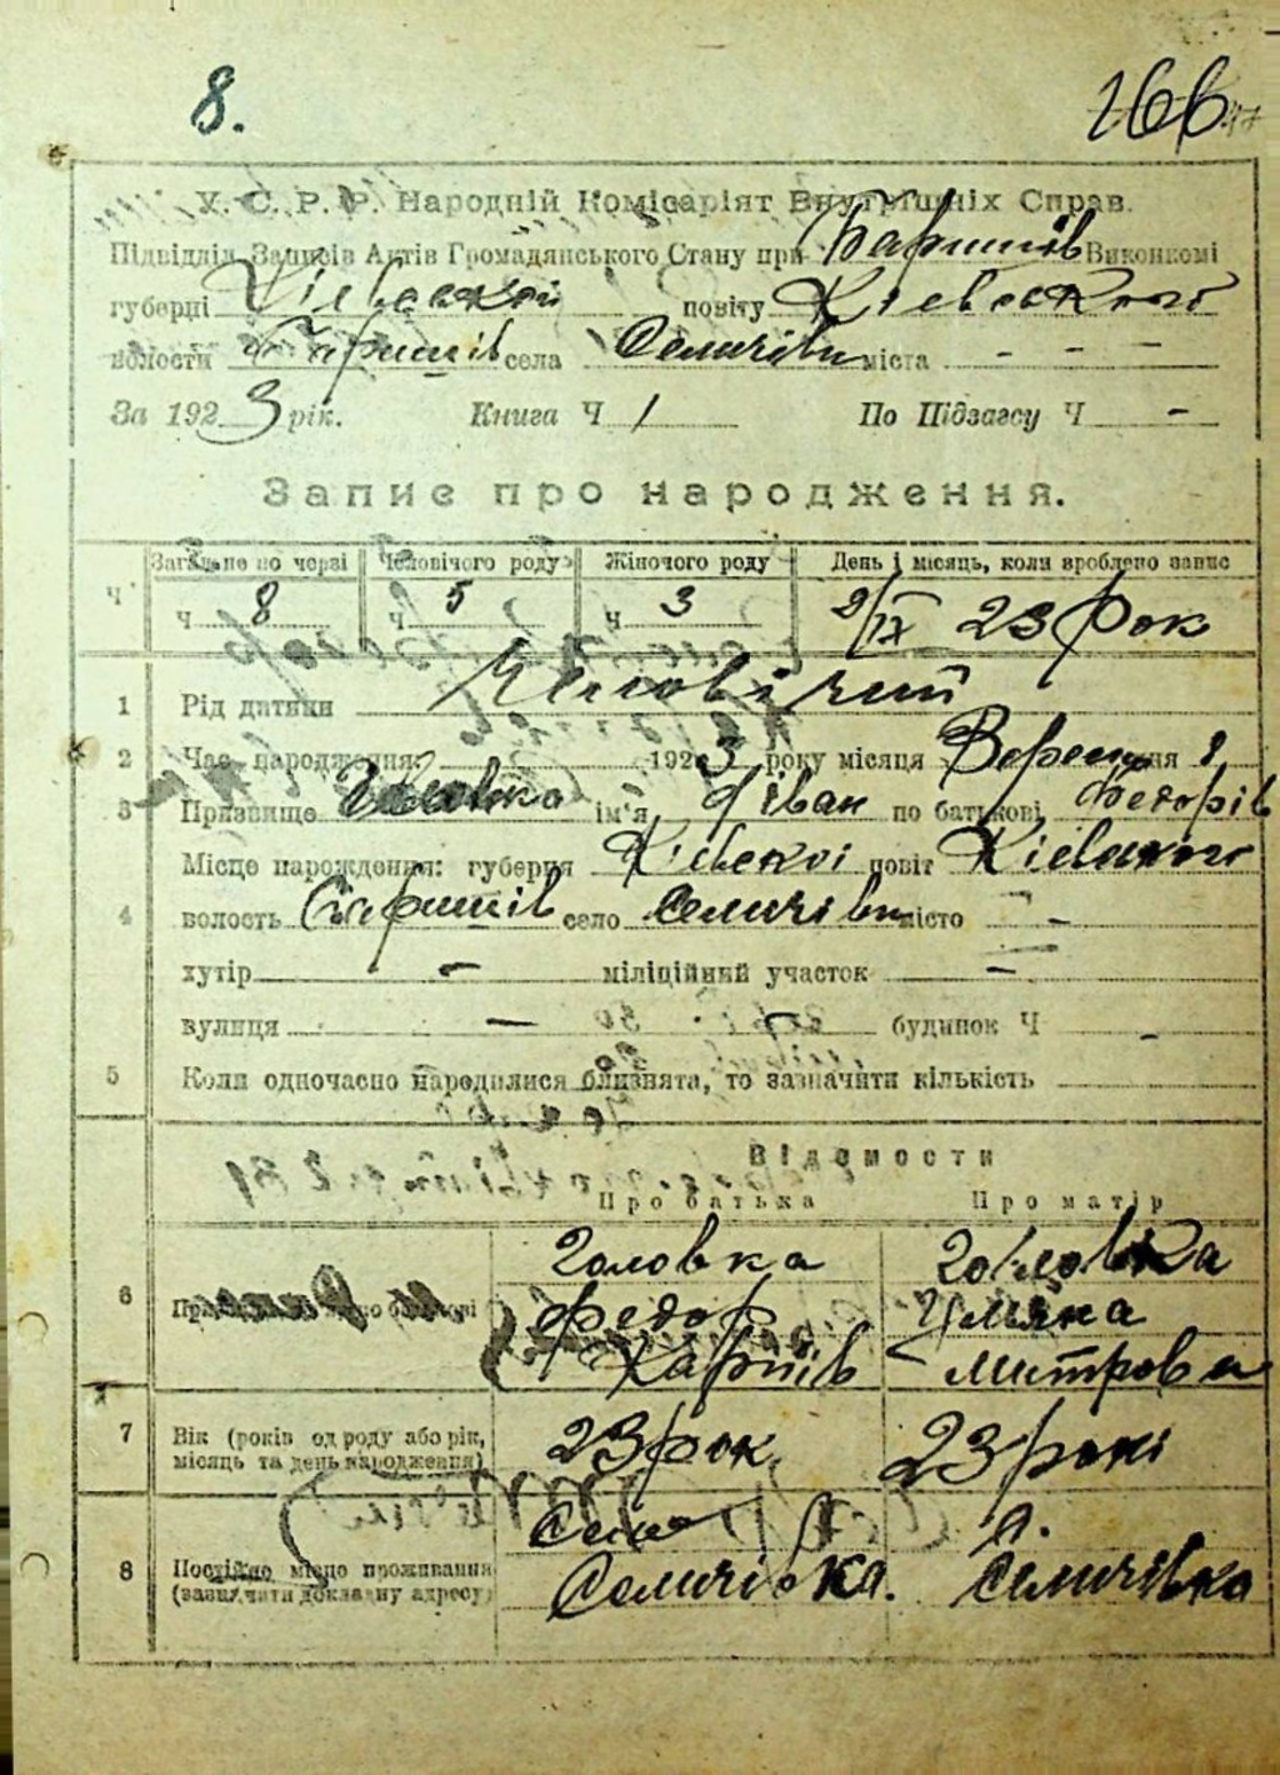 8.
У. С. Р. Р. Народній Комісаріят Внутрішніх Справ.
Підвідділ Записів Актів Громадянського Стану при Баришів Виконкомі
губерні Кіевской повіту Кіевского
волости Баришів села Селичівки міста - - -
За 1923 рік. Книга Ч 1 По Підзагсу Ч -
Запис про народження.
Загальне по черзі Чоловічого роду Жіночого роду День і місяць, коли зроблено запис
Ч ч 8 ч 5 ч 3 9/IX 23 рок
1 Рід дитини Чиловічий
2 Час народження: 1923 року місяця Вересня 8
3 Призвище Головка ім'я Іван по батькові Федорів
Місце народження: губерня Кіевскоі повіт Кіевского
4 волость Баришів село Селичівки місто -
хутір - міліційний участок -
вулиця - будинок Ч -
5 Коли одночасно народилися близнята, то зазначити кількість
Відомости
Про батька Про матір
Головка Головка
6 по батькові Федор Ульяна
Карпів Митрова
7 Вік (років од роду або рік, 23 рок. 23 рокі
місяць та день народження)
Село С.
8 Постійне місце проживання Селичівка. Селичівка
(зазначити докладну адресу)